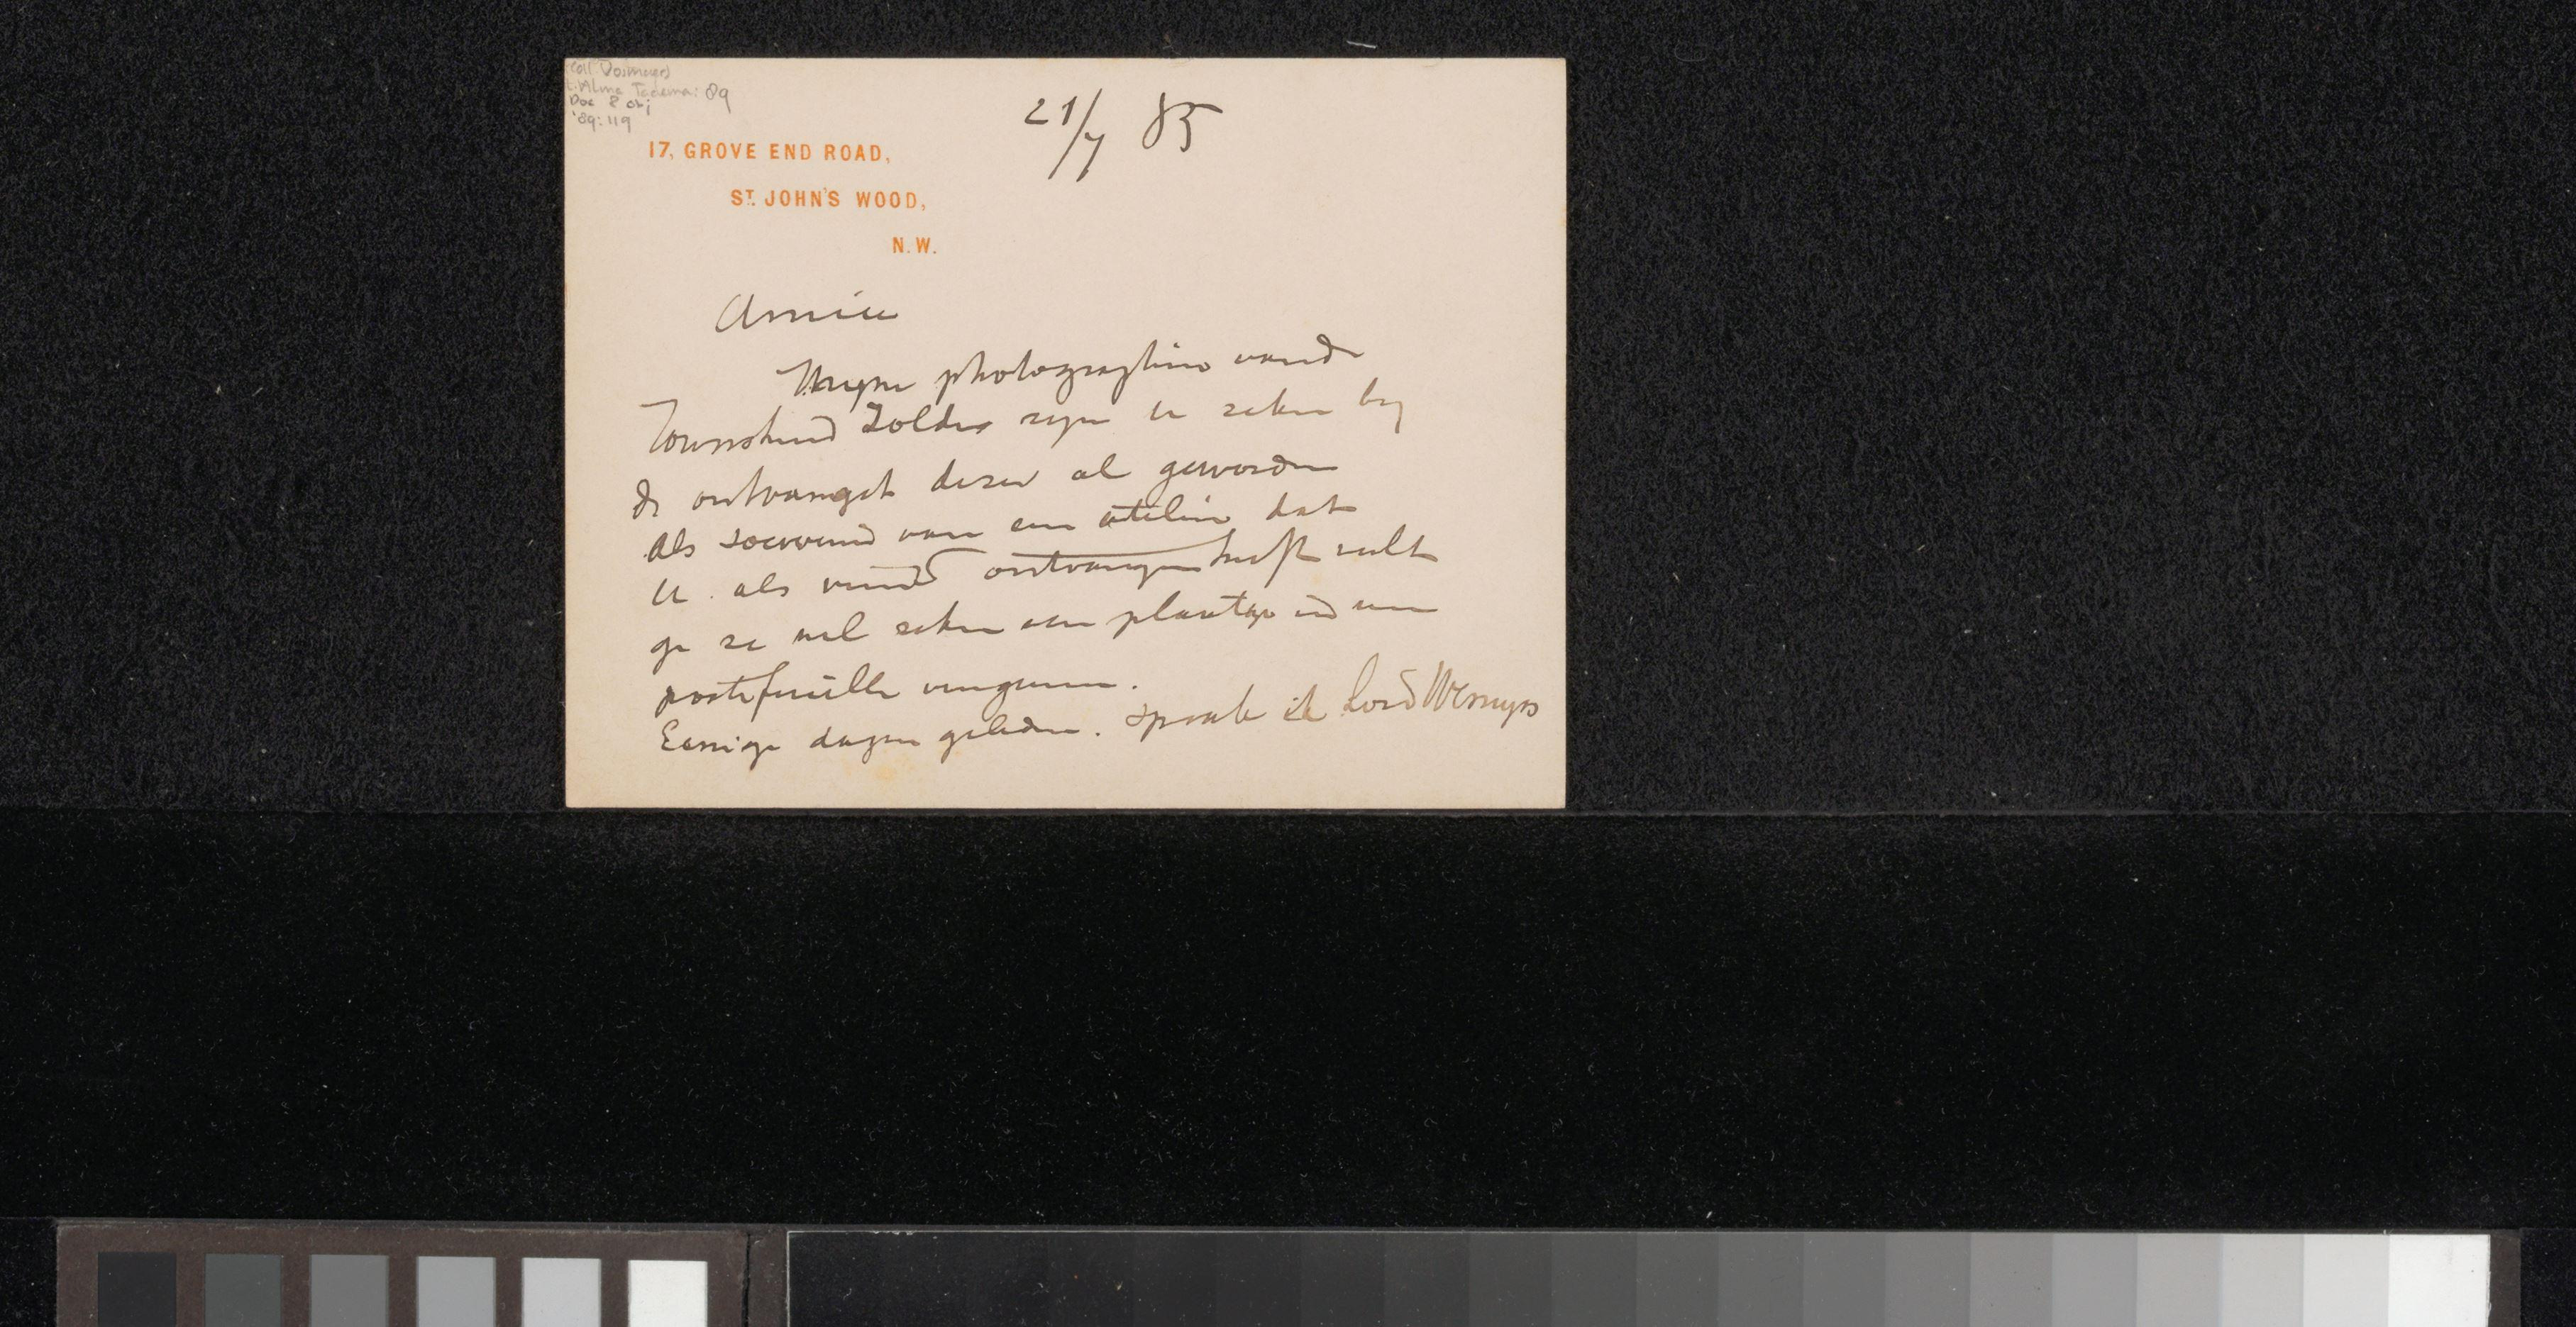 (Coll Dosmeyer)
L. Alma Tadema: 89
Doc 8 obj
'89: 119
21/7 85
17, GROVE END ROAD,
ST. JOHN'S WOOD,
N.W.
Amice
Myne photographien van de
Townshend Zolder zyn U zeker by
de ontvangst dezer al geworden
Als souvenir van een atelier dat
U als vriend ontvangen heeft zult
ge ze wel zeker een plaatsje in een
portefeuille vergunnen.
Eenige dagen geleden sprak ik Lord Wemyss